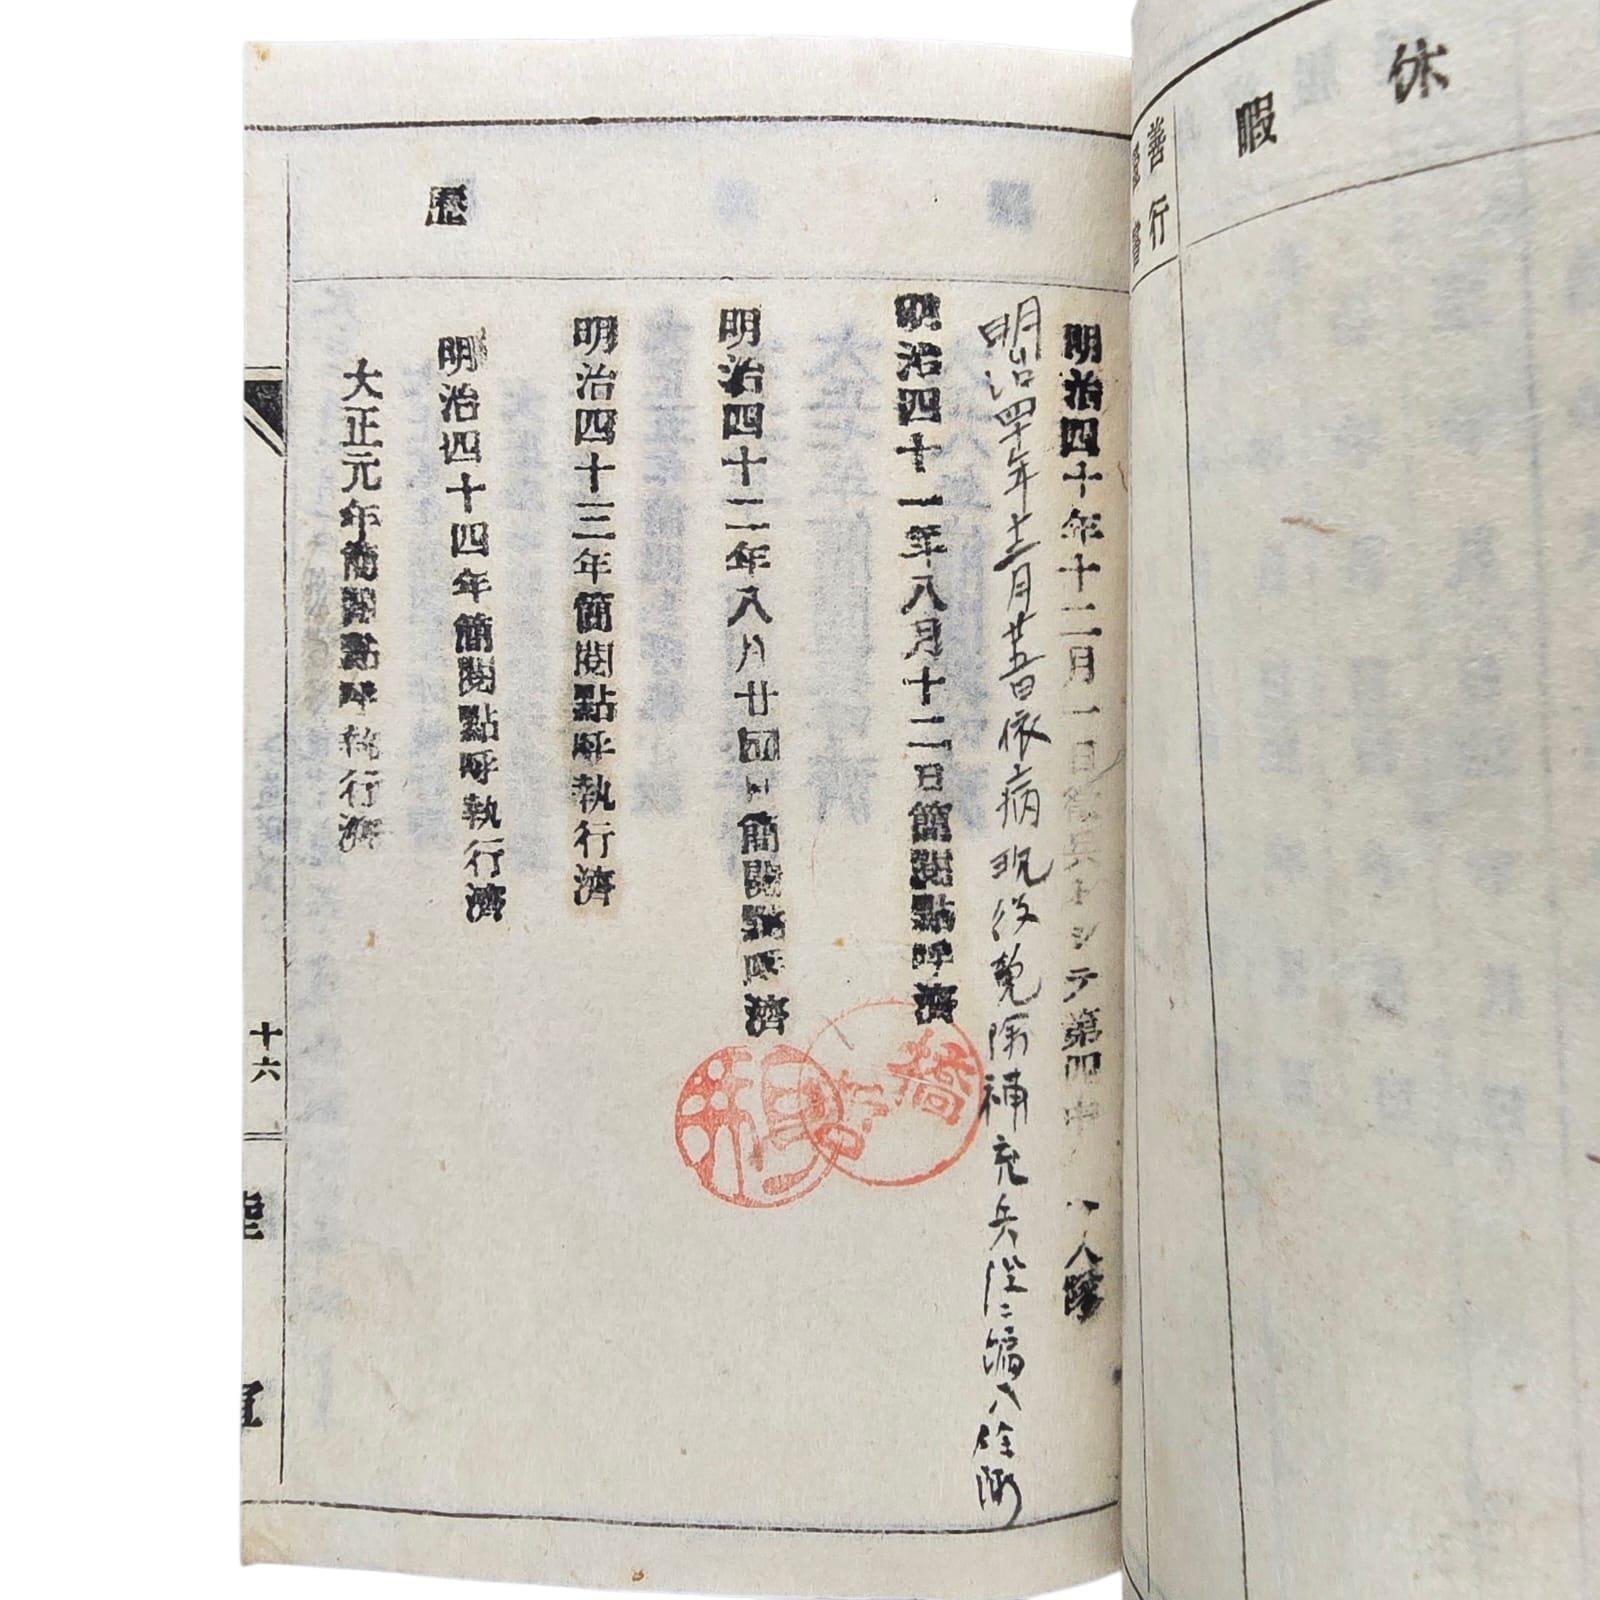 休暇
善行
歷
明治四十年十二月一日徵兵トシテ第四中 入隊
明治四十年十二月廿五日依病現役免除補充兵役ニ編入除隊
明治四十一年八月十二日簡閱點呼濟
明治四十二年八月廿四日簡閱點呼濟
明治四十三年簡閱點呼執行濟
明治四十四年簡閱點呼執行濟
大正元年簡閱點呼執行濟
十六